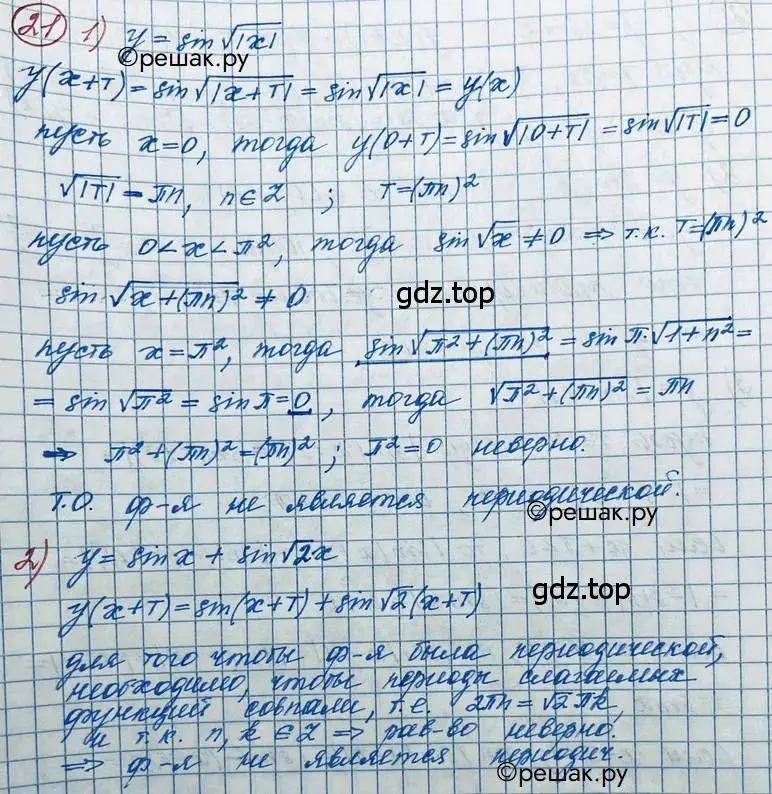 21 1) y = sin √|x|
©решак.ру
y(x+T) = sin √|x+T| = sin √|x| = y(x)
пусть x=0, тогда y(0+T) = sin √|0+T| = sin √|T| = 0
√|T| = πn, n ∈ Z ; T = (πn)²
пусть 0 < x < π², тогда sin √x ≠ 0 ⇒ т.к. T = (πn)²
sin √(x+(πn)²) ≠ 0
gdz.top
пусть x = π², тогда sin √(π²+(πn)²) = sin π·√(1+n²) =
= sin √π² = sin π = 0, тогда √(π²+(πn)²) = πn
⇒ π²+(πn)² = (πn)² ; π² = 0 неверно.
Т.О. ф-я не является периодической.
©решак.ру
2) y = sin x + sin √2 x
gdz.top
y(x+T) = sin(x+T) + sin √2 (x+T)
для того чтобы ф-я была периодической,
необходимо, чтобы периоды слагаемых
функций совпали, т.е. 2πn = √2 πk,
и т.к. n, k ∈ Z ⇒ рав-во неверно.
⇒ ф-я не является периодич.
©решак.ру